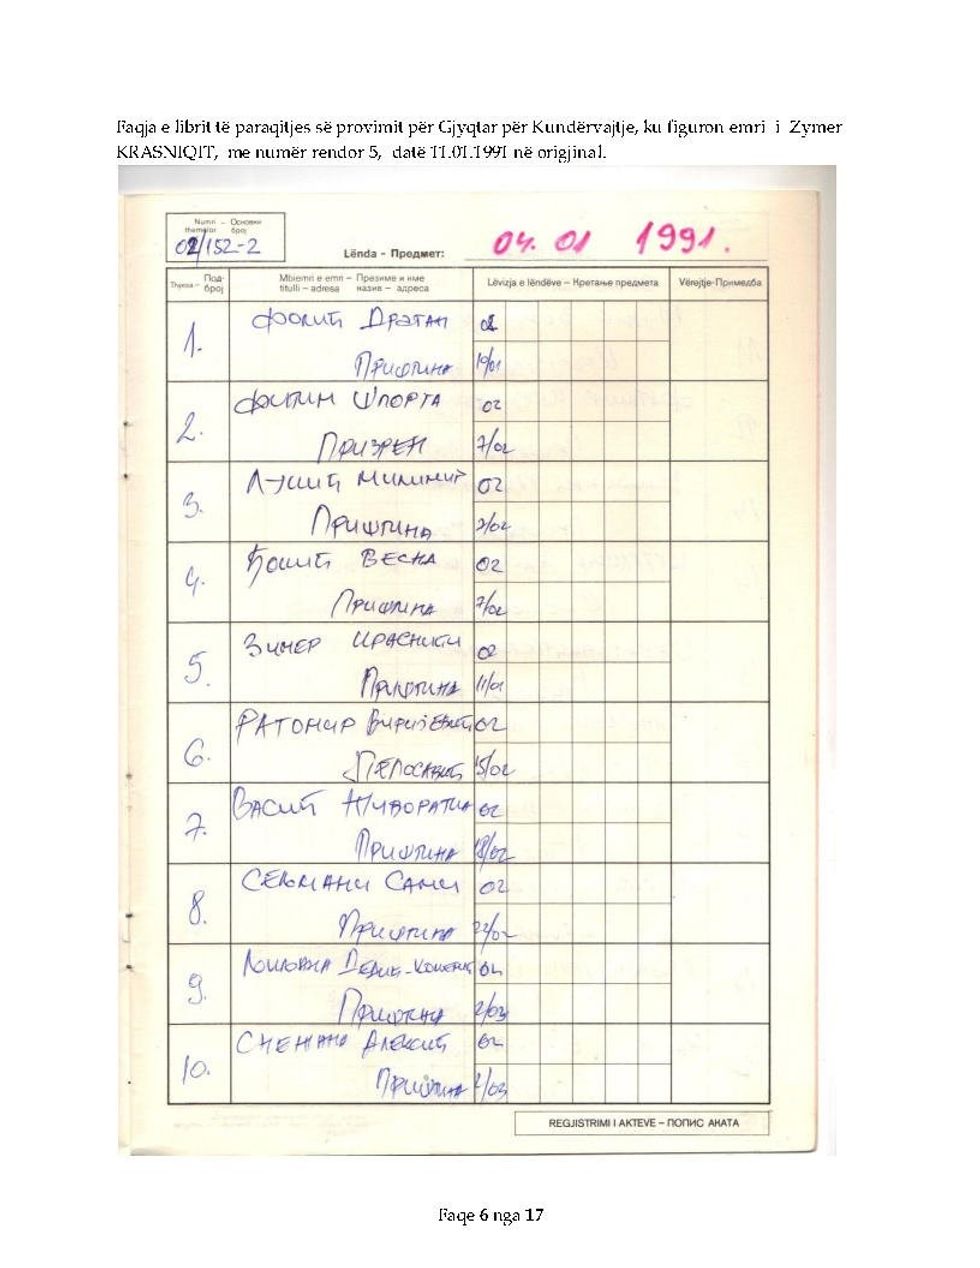 Faqja e librit të paraqitjes së provimit për Gjyqtar për Kundërvajtje, ku figuron emri i Zymer
KRASNIQIT, me numër rendor 5, datë 11.01.1991 në origjinal.
Numri – Основни
themelor број
02/152-2
Lënda - Предмет: 04. 01 1991.
Под-
број
Mbiemri e emri – Презиме и име
titulli – adresa назив – адреса
Lëvizja e lëndëve – Кретање предмета
Vërejtje-Примедба
1.
02
Приштина 10/01
2. 02
Призрен 7/02
3. 02
Приштина 7/02
4. Весна 02
Приштина 7/02
5. Зимер Красники 02
Приштина 11/01
6. Ратомир 02
15/02
7. Васић 02
Приштина 18/02
8. Сељмани Сами 02
Приштина 22/02
9.
Приштина 2/03
10. Снежана Алексић 02
Приштина 2/03
REGJISTRIMI I AKTEVE – ПОПИС АКАТА
Faqe 6 nga 17